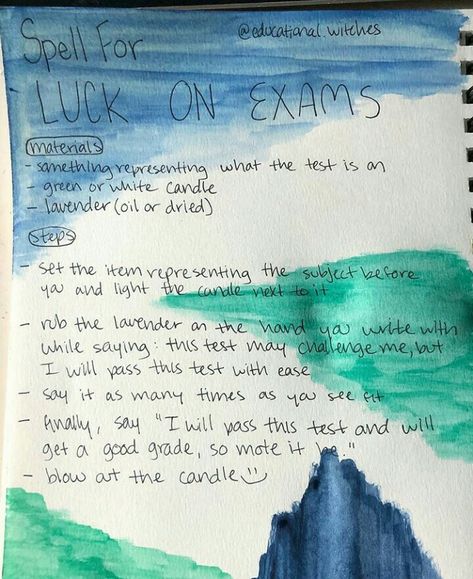 Spell For
@educational.witches
LUCK ON EXAMS
materials
- something representing what the test is on
- green or white candle
- lavender (oil or dried)
steps
- set the item representing the subject before
you and light the candle next to it
- rub the lavender on the hand you write with
while saying: this test may challenge me, but
I will pass this test with ease
- say it as many times as you see fit
- finally, say "I will pass this test and will
get a good grade, so mote it be."
- blow out the candle :)